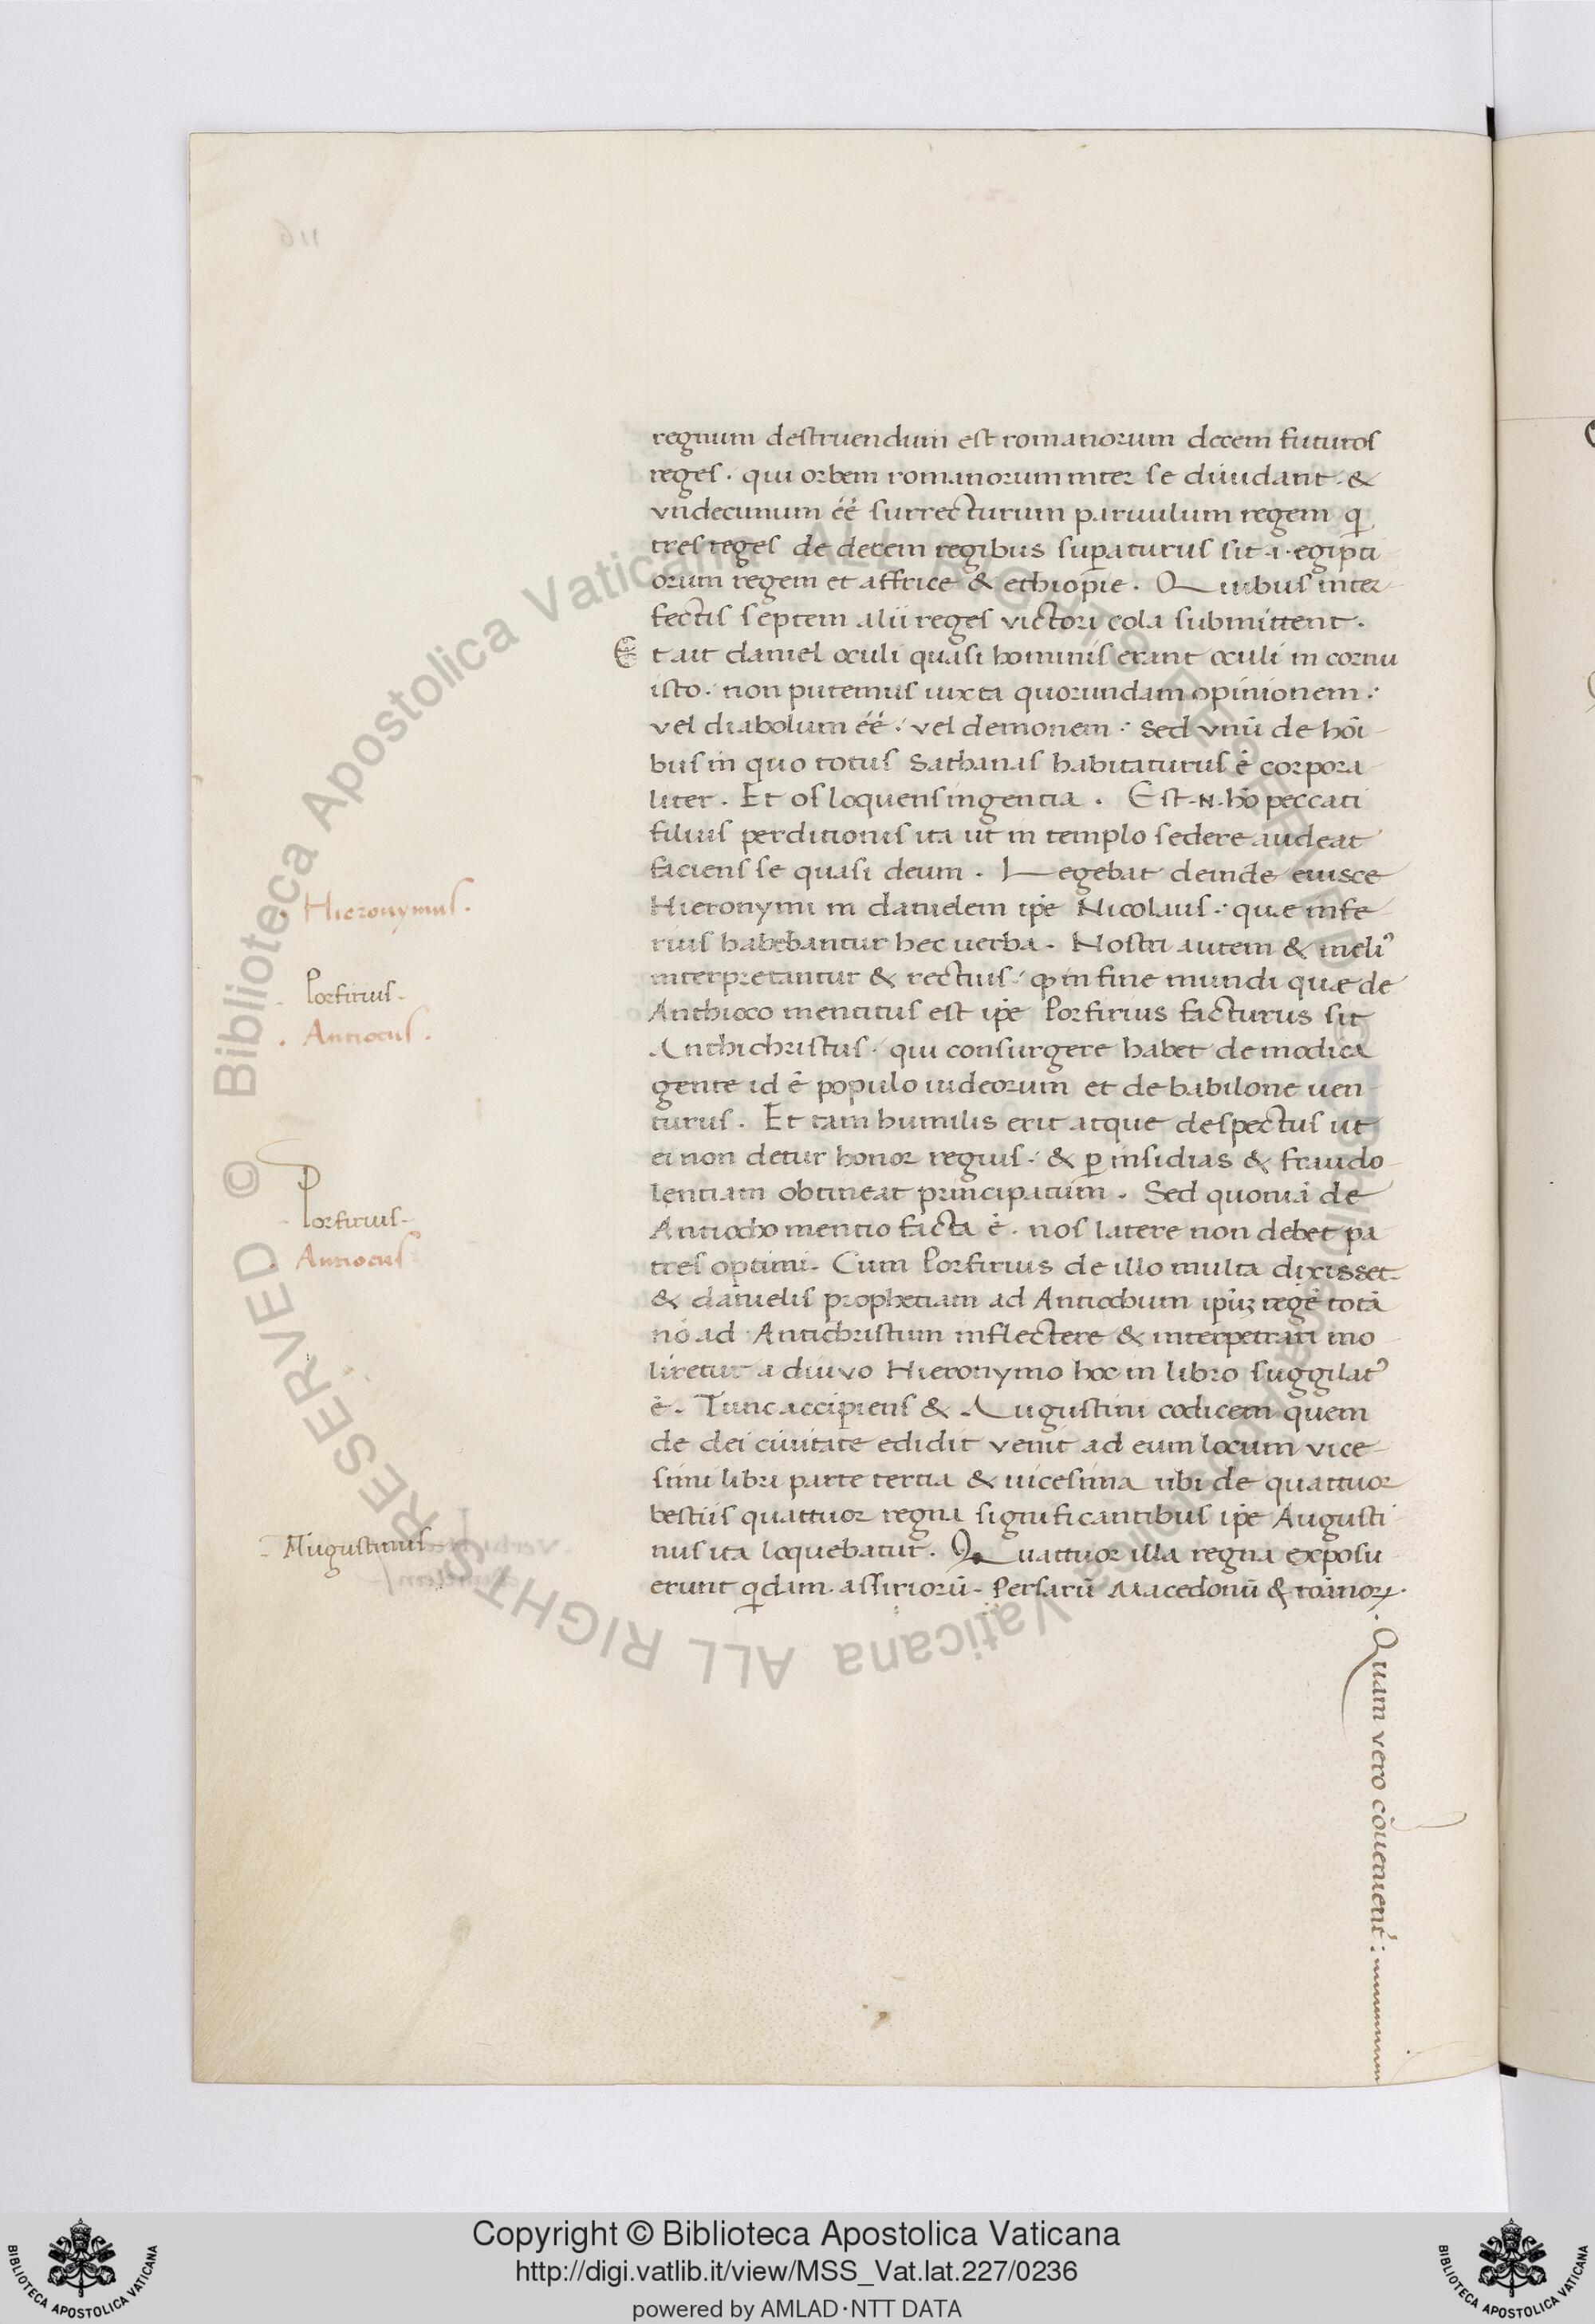 regnum destruendum est romanorum decem futuros
reges. qui orbem romanorum inter se diuidant. &
vndecimum éé surrecturum paruulum regem q
tres reges de decem regibus supaturus sit .i. egipti
orum regem et affrice & ethiopie. Quibus inter
fectis septem alii reges victori cola submittent.
Et ait daniel oculi quasi hominis erant oculi in cornu
isto. non putemus iuxta quorundam opinionem:
vel diabolum éé: vel demonem: Sed vnū de hoī
bus in quo totus Sathanas habitaturus ē corpora
liter. Et os loquens ingentia. Est .N. hō peccati
filius perditionis ita ut in templo sedere audeat
faciens se quasi deum. Legebat deinde eiusce
Hieronymi in danielem ipē Nicolaus: quæ infe
rius habebantur hec uerba. Nostri autem & meliꝰ
interpretantur & rectius. ꝙ in fine mundi quæ de
Anthioco mentitus est ipē Porfirius facturus sit
Anthichristus. qui consurgere habet de modica
gente id ē populo iudeorum et de babilone uen
turus. Et tam humilis erit atque despectus ut
ei non detur honor regius. & p insidias & fraudo
lentiam obtineat principatum. Sed quoniā de
Antiocho mentio facta ē. nos latere non debet pa
tres optimi. Cum Porfirius de illo multa dixisset
& danielis prophetiam ad Antiochum ipūʒ regē totā
nō ad Antichristum inflectere & interpetrari mo
liretur a diuvo Hieronymo hoc in libro suggilatꝰ
ē. Tunc accipiens & Augustini codicem quem
de dei ciuitate edidit venit ad eum locum vice
simi libri parte tertia & uicesima ubi de quattuor
bestiis quattuor regna significantibus ipē Augusti
nus ita loquebatur. Quattuor illa regna exposu
erunt qdam. assiriorū. Persarū Macedonū & roāinoꝝ.
Quam vero cōuenient̉:
. Hieronymus.
Porfirius.
. Antiocus.
Porfirius
. Antiocus
Augustinus
116
Copyright © Biblioteca Apostolica Vaticana
http://digi.vatlib.it/view/MSS_Vat.lat.227/0236
powered by AMLAD·NTT DATA
BIBLIOTECA APOSTOLICA VATICANA
BIBLIOTECA APOSTOLICA VATICANA
© Biblioteca Apostolica Vaticana ALL RIGHTS RESERVED
© Biblioteca Apostolica Vaticana ALL RIGHTS RESERVED